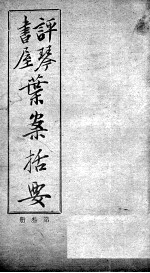 評琴書屋葉案括要
第叁冊